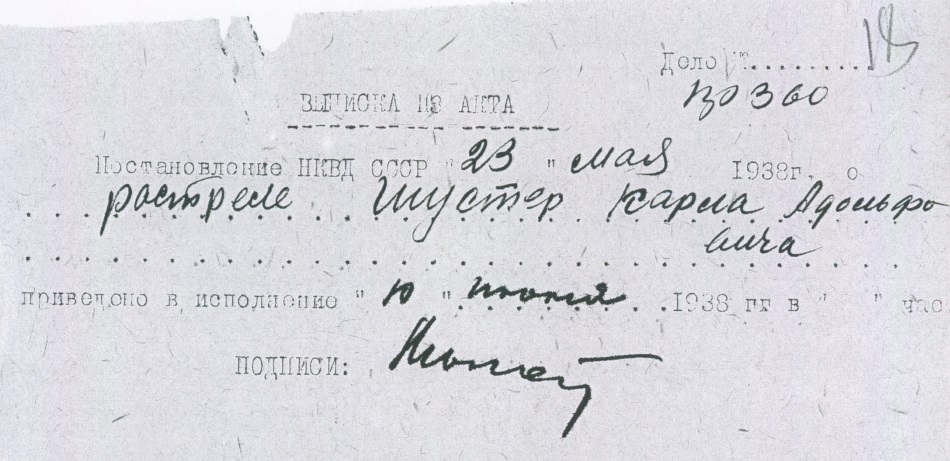 18
Дело №.........
130360
ВЫПИСКА ИЗ АКТА
Постановление НКВД СССР "23" мая 1938г. о
растреле Шустер Карла Адольфо
вича
приведено в исполнение "10" июня 1938 гг в " " час
ПОДПИСИ: